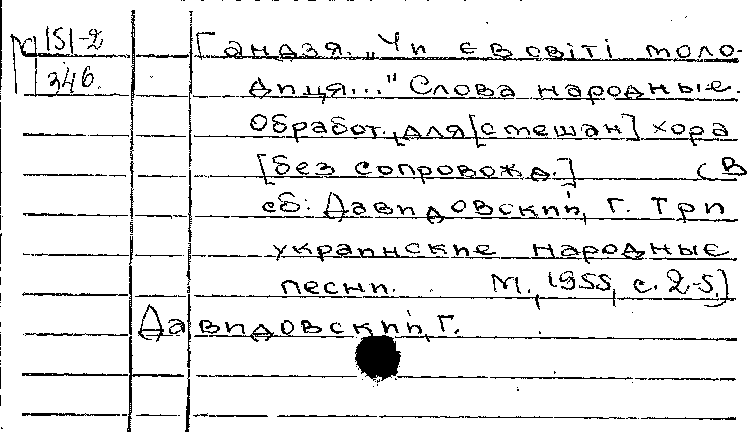 М 151-2
346.
Гандзя. „Чи є в світі моло-
диця..." Слова народные.
Обработ. для [смешан] хора
[без сопровожд.] (В
сб: Давидовский, Г. Три
украинские народные
песни. М., 1955, с. 2-5.)
Давидовский, Г.